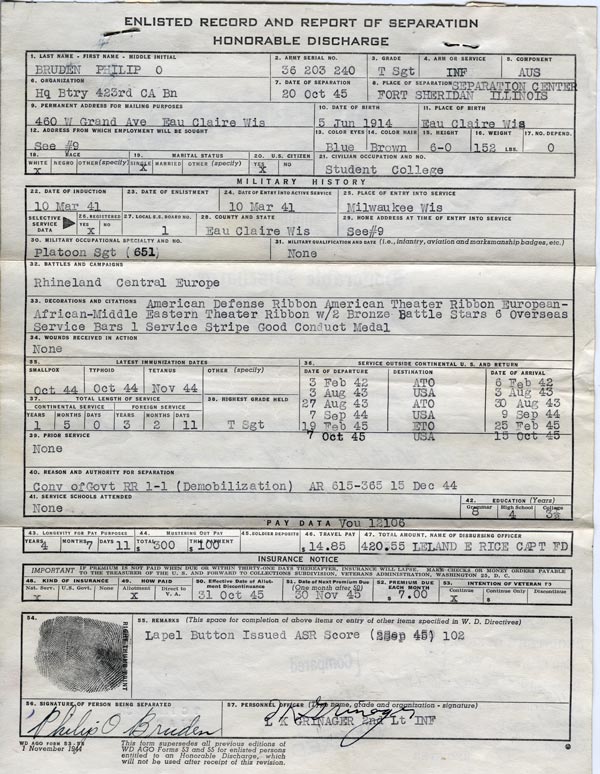 ENLISTED RECORD AND REPORT OF SEPARATION
HONORABLE DISCHARGE
1. LAST NAME - FIRST NAME - MIDDLE INITIAL 2. ARMY SERIAL NO. 3. GRADE 4. ARM OR SERVICE 5. COMPONENT
BRUDEN PHILIP O 36 203 240 T Sgt INF AUS
6. ORGANIZATION 7. DATE OF SEPARATION 8. PLACE OF SEPARATION SEPARATION CENTER
Hq Btry 423rd CA Bn 20 Oct 45 FORT SHERIDAN ILLINOIS
9. PERMANENT ADDRESS FOR MAILING PURPOSES 10. DATE OF BIRTH 11. PLACE OF BIRTH
460 W Grand Ave Eau Claire Wis 5 Jun 1914 Eau Claire Wis
12. ADDRESS FROM WHICH EMPLOYMENT WILL BE SOUGHT 13. COLOR EYES 14. COLOR HAIR 15. HEIGHT 16. WEIGHT 17. NO. DEPEND.
See #9 Blue Brown 6-0 152 LBS. 0
18. RACE 19. MARITAL STATUS 20. U.S. CITIZEN 21. CIVILIAN OCCUPATION AND NO.
WHITE NEGRO OTHER (specify) SINGLE MARRIED OTHER (specify) YES NO
X X X Student College
MILITARY HISTORY
22. DATE OF INDUCTION 23. DATE OF ENLISTMENT 24. DATE OF ENTRY INTO ACTIVE SERVICE 25. PLACE OF ENTRY INTO SERVICE
10 Mar 41 10 Mar 41 Milwaukee Wis
SELECTIVE SERVICE DATA 26. REGISTERED YES NO 27. LOCAL S.S. BOARD NO. 28. COUNTY AND STATE 29. HOME ADDRESS AT TIME OF ENTRY INTO SERVICE
X 1 Eau Claire Wis See#9
30. MILITARY OCCUPATIONAL SPECIALTY AND NO. 31. MILITARY QUALIFICATION AND DATE (i.e., infantry, aviation and marksmanship badges, etc.)
Platoon Sgt (651) None
32. BATTLES AND CAMPAIGNS
Rhineland Central Europe
33. DECORATIONS AND CITATIONS American Defense Ribbon American Theater Ribbon European-
African-Middle Eastern Theater Ribbon w/2 Bronze Battle Stars 6 Overseas
Service Bars 1 Service Stripe Good Conduct Medal
34. WOUNDS RECEIVED IN ACTION
None
35. LATEST IMMUNIZATION DATES 36. SERVICE OUTSIDE CONTINENTAL U.S. AND RETURN
SMALLPOX TYPHOID TETANUS OTHER (specify) DATE OF DEPARTURE DESTINATION DATE OF ARRIVAL
Oct 44 Oct 44 Nov 44 3 Feb 42 ATO 6 Feb 42
3 Aug 43 USA 3 Aug 43
37. TOTAL LENGTH OF SERVICE 38. HIGHEST GRADE HELD 27 Aug 43 ATO 30 Aug 43
CONTINENTAL SERVICE FOREIGN SERVICE 7 Sep 44 USA 9 Sep 44
YEARS MONTHS DAYS YEARS MONTHS DAYS
1 5 0 3 2 11 T Sgt 19 Feb 45 ETO 25 Feb 45
39. PRIOR SERVICE 7 Oct 45 USA 15 Oct 45
None
40. REASON AND AUTHORITY FOR SEPARATION
Conv ofGovt RR 1-1 (Demobilization) AR 615-365 15 Dec 44
41. SERVICE SCHOOLS ATTENDED 42. EDUCATION (Years)
None Grammar High School College
8 4 3½
PAY DATA Vou 12106
43. LONGEVITY FOR PAY PURPOSES 44. MUSTERING OUT PAY 45. SOLDIER DEPOSITS 46. TRAVEL PAY 47. TOTAL AMOUNT, NAME OF DISBURSING OFFICER
YEARS 4 MONTHS 7 DAYS 11 TOTAL $300 THIS PAYMENT $100 $14.85 420.55 LELAND E RICE CAPT FD
INSURANCE NOTICE
IMPORTANT IF PREMIUM IS NOT PAID WHEN DUE OR WITHIN THIRTY-ONE DAYS THEREAFTER, INSURANCE WILL LAPSE. MAKE CHECKS OR MONEY ORDERS PAYABLE
TO THE TREASURER OF THE U. S. AND FORWARD TO COLLECTIONS SUBDIVISION, VETERANS ADMINISTRATION, WASHINGTON 25, D. C.
48. KIND OF INSURANCE 49. HOW PAID 50. Effective Date of Allotment Discontinuance 51. Date of Next Premium Due (One month after 50) 52. PREMIUM DUE EACH MONTH 53. INTENTION OF VETERAN TO
Nat. Serv. U.S. Govt. None Allotment Direct to V. A. Continue Continue Only Discontinue
X 31 Oct 45 30 Nov 45 $ 7.00 X $
54. 55. REMARKS (This space for completion of above items or entry of other items specified in W. D. Directives)
Lapel Button Issued ASR Score (2Sep 45) 102
RIGHT THUMB PRINT
56. SIGNATURE OF PERSON BEING SEPARATED 57. PERSONNEL OFFICER (Type name, grade and organization - signature)
Philip O Bruden L K GRYNAGER 2nd Lt INF
WD AGO FORM 53-55
1 November 1944
This form supersedes all previous editions of
WD AGO Forms 53 and 55 for enlisted persons
entitled to an Honorable Discharge, which
will not be used after receipt of this revision.